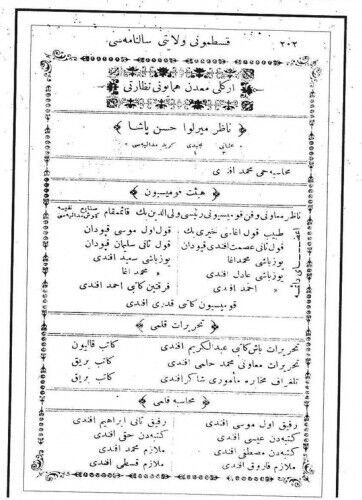 ٢٠٢ قسطمونی ولایتی سالنامه‌سی
ارکلی معدن همایونی نظارتی
ناظر میرلوا حسن پاشا
عثمانی مجیدی کرید مدالیه‌سی
محاسبه‌جی محمد افندی
هیئت قومیسیون
ناظر معاونی و فن قومیسیونی رئیسی ولی الدین بك قائممقام صنایع نفیسه کومش مدالیه‌سی
اعضای دائمه
طبیب قول اغاسی خیری بك قول اول موسی قپودان
قول ثانی عصمت افندی قپودان قول ثانی سلمان قپودان
یوزباشی محمد اغا یوزباشی سعید افندی
یوزباشی عادل افندی » محمد اغا
» احمد افندی فرقتین کاتبی احمد افندی
قومیسیون کاتبی قدری افندی
تحریرات قلمی
تحریرات باش کاتبی عبدالکریم افندی کاتب قالیون
تحریرات معاونی محمد حامی افندی کاتب بریق
تلغراف مخابره مأموری شاکر افندی کاتب بریق
محاسبه قلمی
رفیق اول موسی افندی رفیق ثانی ابراهیم افندی
کتبه‌دن عیسی افندی کتبه‌دن حقی افندی
کتبه‌دن مصطفی افندی ملازم محمد افندی
ملازم فاروق افندی ملازم قسطی افندی